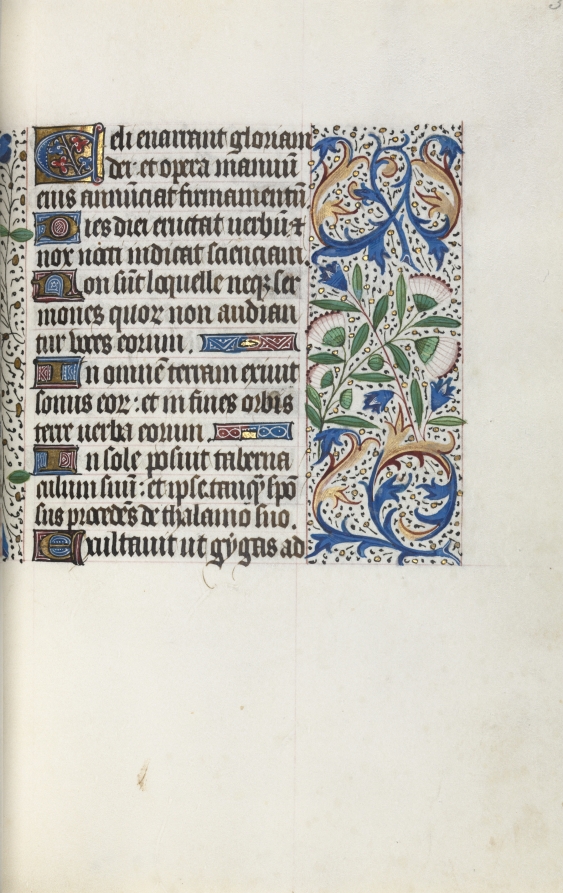 Celi enarrant gloriam
dei: et opera manuū
eius annūciat firmamentū
Dies diei eructat uerbū ⁊
nox nocti indicat scienciam.
Non sūt loquelle neqꝫ ser
mones quoꝝ non audian
tur uoces eorum.
In omnē terram exiuit
sonus eoꝝ: et in fines orbis
terre uerba eorum.
In sole posuit taberna
culum suū: et ipse tanqͣꝫ spō
sus procedēs de thalamo suo.
Exultauit ut gygas ad